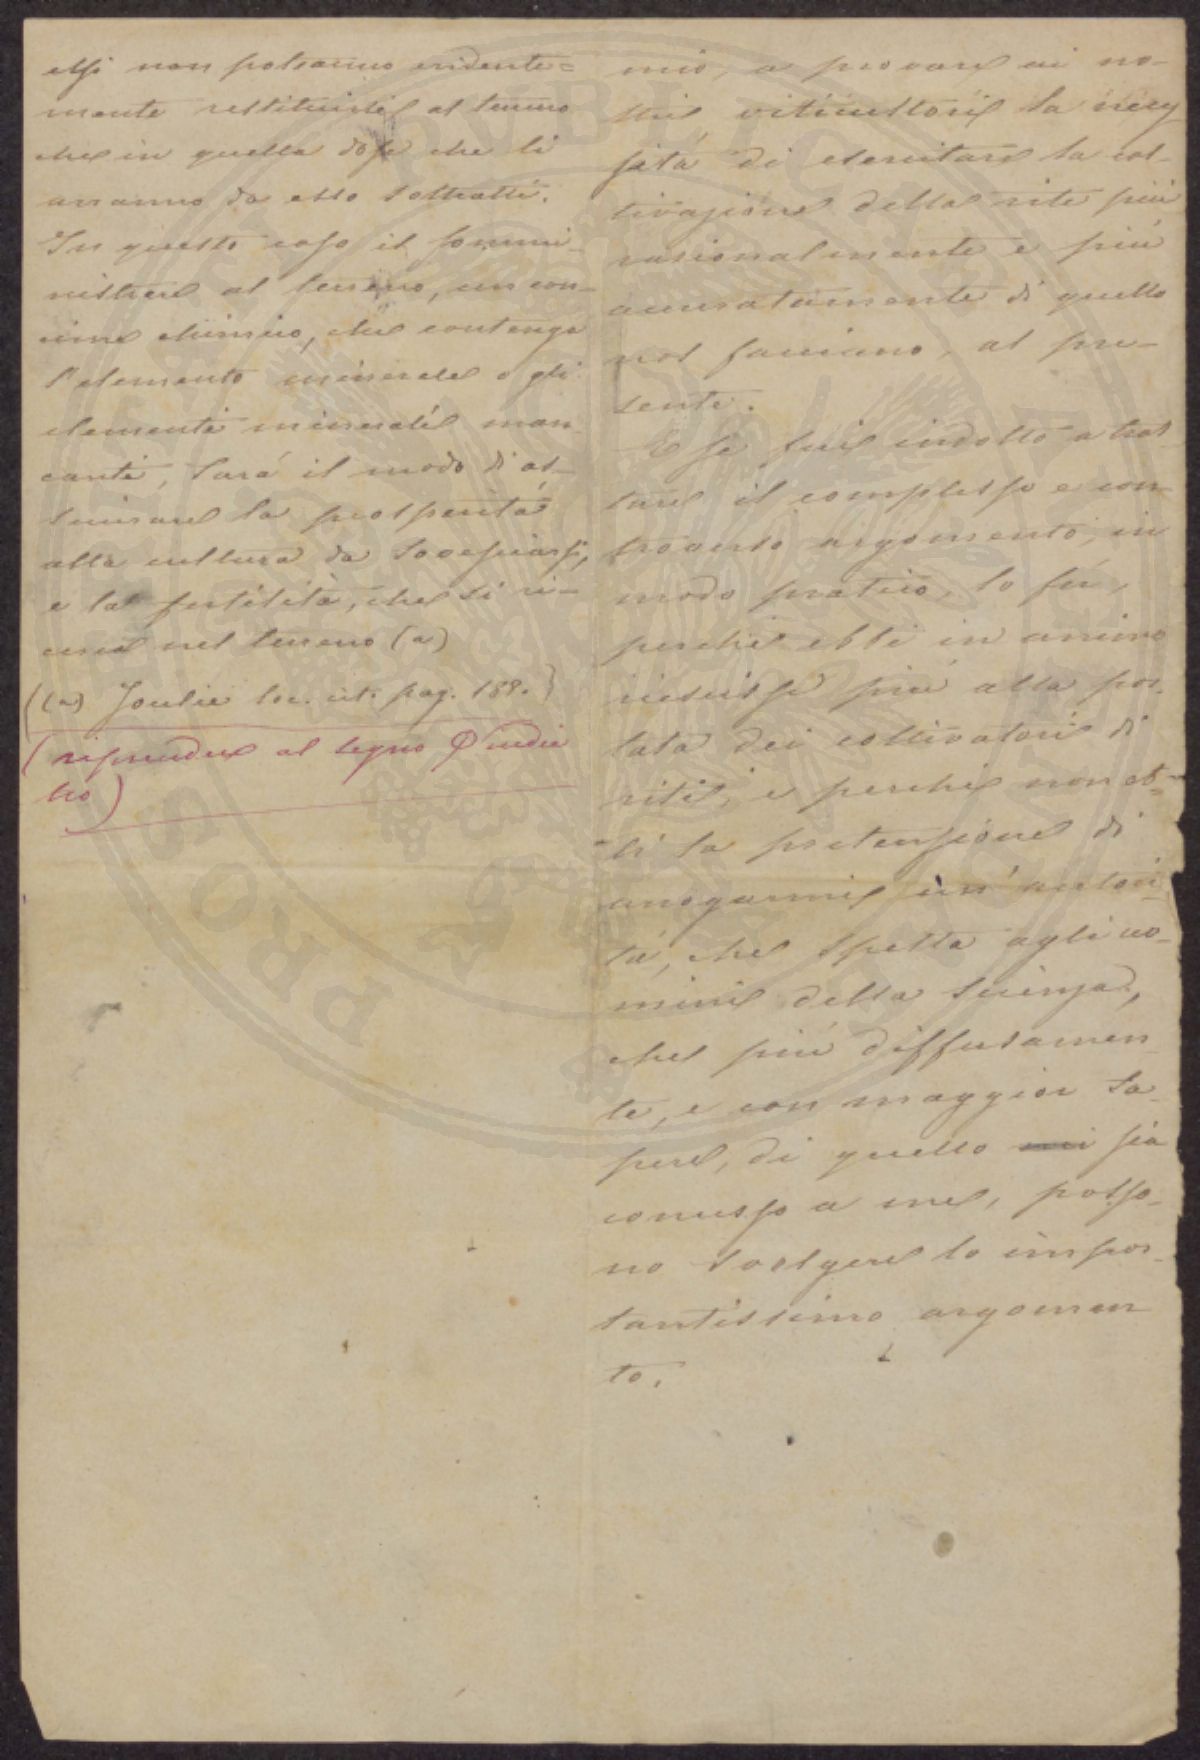 essi non potranno evidente=
mente restituirsi al terreno
che in quella dose che li
avranno da esso sottratti.
In questo caso il sommi-
nistrare al terreno, un con-
cime chimico, che contenga
l'elemento minerale o gli
elementi minerali man-
canti, sarà il modo di as-
sicurare la prosperità
alla cultura da
e la fertilità, che si ri-
cerca nel terreno (a)
((a) Joulie loc. cit. pag. 189.)
(riprendere al segno Φ indie
tro)
mio, a provare ai no-
stri viticultori la neces
sità di esercitare la col-
tivazione della vite più
razionalmente e più
accuratamente di quello
nol facciano, al pre-
sente.
E se fui indotto a trat
tare il complesso e con
troverso argomento, in
modo pratico, lo fu,
perchè ebbi in animo
riescisse più alla por-
tata dei coltivatori di
viti, e perchè non eb-
bi la pretensione di
arrogarmi un'autori-
tà, che spetta agli uo-
mini della scienza,
che più diffusamen
te, e con maggior sa-
pere, di quello sia
concesso a me, posso-
no svolgere lo impor-
tantissimo argomen
to.